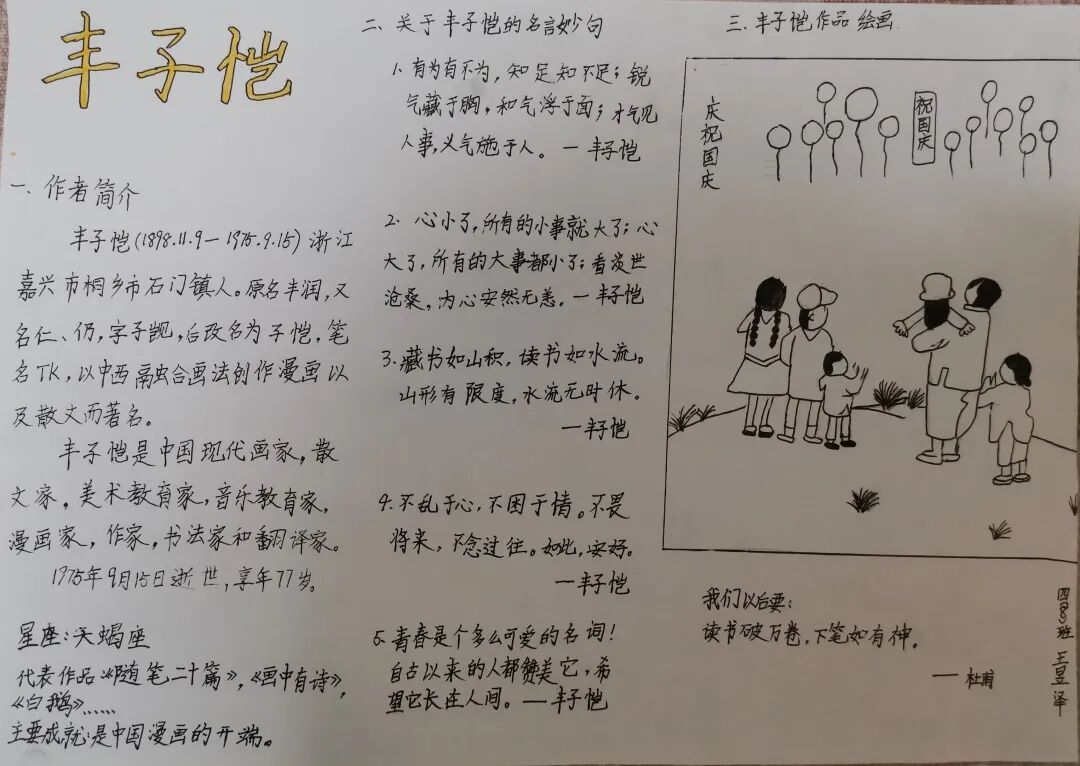 丰子恺
一、作者简介
丰子恺(1898.11.9—1975.9.15)浙江
嘉兴市桐乡市石门镇人。原名丰润,又
名仁、仍,字子觊,后改名为子恺,笔
名TK,以中西融合画法创作漫画以
及散文而著名。
丰子恺是中国现代画家,散
文家,美术教育家,音乐教育家,
漫画家,作家,书法家和翻译家。
1975年9月15日逝世,享年77岁。
星座:天蝎座
代表作品《随笔二十篇》,《画中有诗》,
《白鹅》……
主要成就是中国漫画的开端。
二、关于丰子恺的名言妙句
1. 有为有不为,知足知不足;锐
气藏于胸,和气浮于面;才气见
人事,义气施于人。—丰子恺
2. 心小了,所有的小事就大了;心
大了,所有的大事都小了;看淡世
沧桑,内心安然无恙。—丰子恺
3. 藏书如山积,读书如水流。
山形有限度,水流无时休。
—丰子恺
4. 不乱于心,不困于情。不畏
将来,不念过往。如此,安好。
—丰子恺
5. 青春是个多么可爱的名词!
自古以来的人都赞美它,希
望它长在人间。——丰子恺
三、丰子恺作品绘画
庆祝国庆
祝国庆
我们以后要:
读书破万卷,下笔如有神。
——杜甫
四(8)班 王昱泽